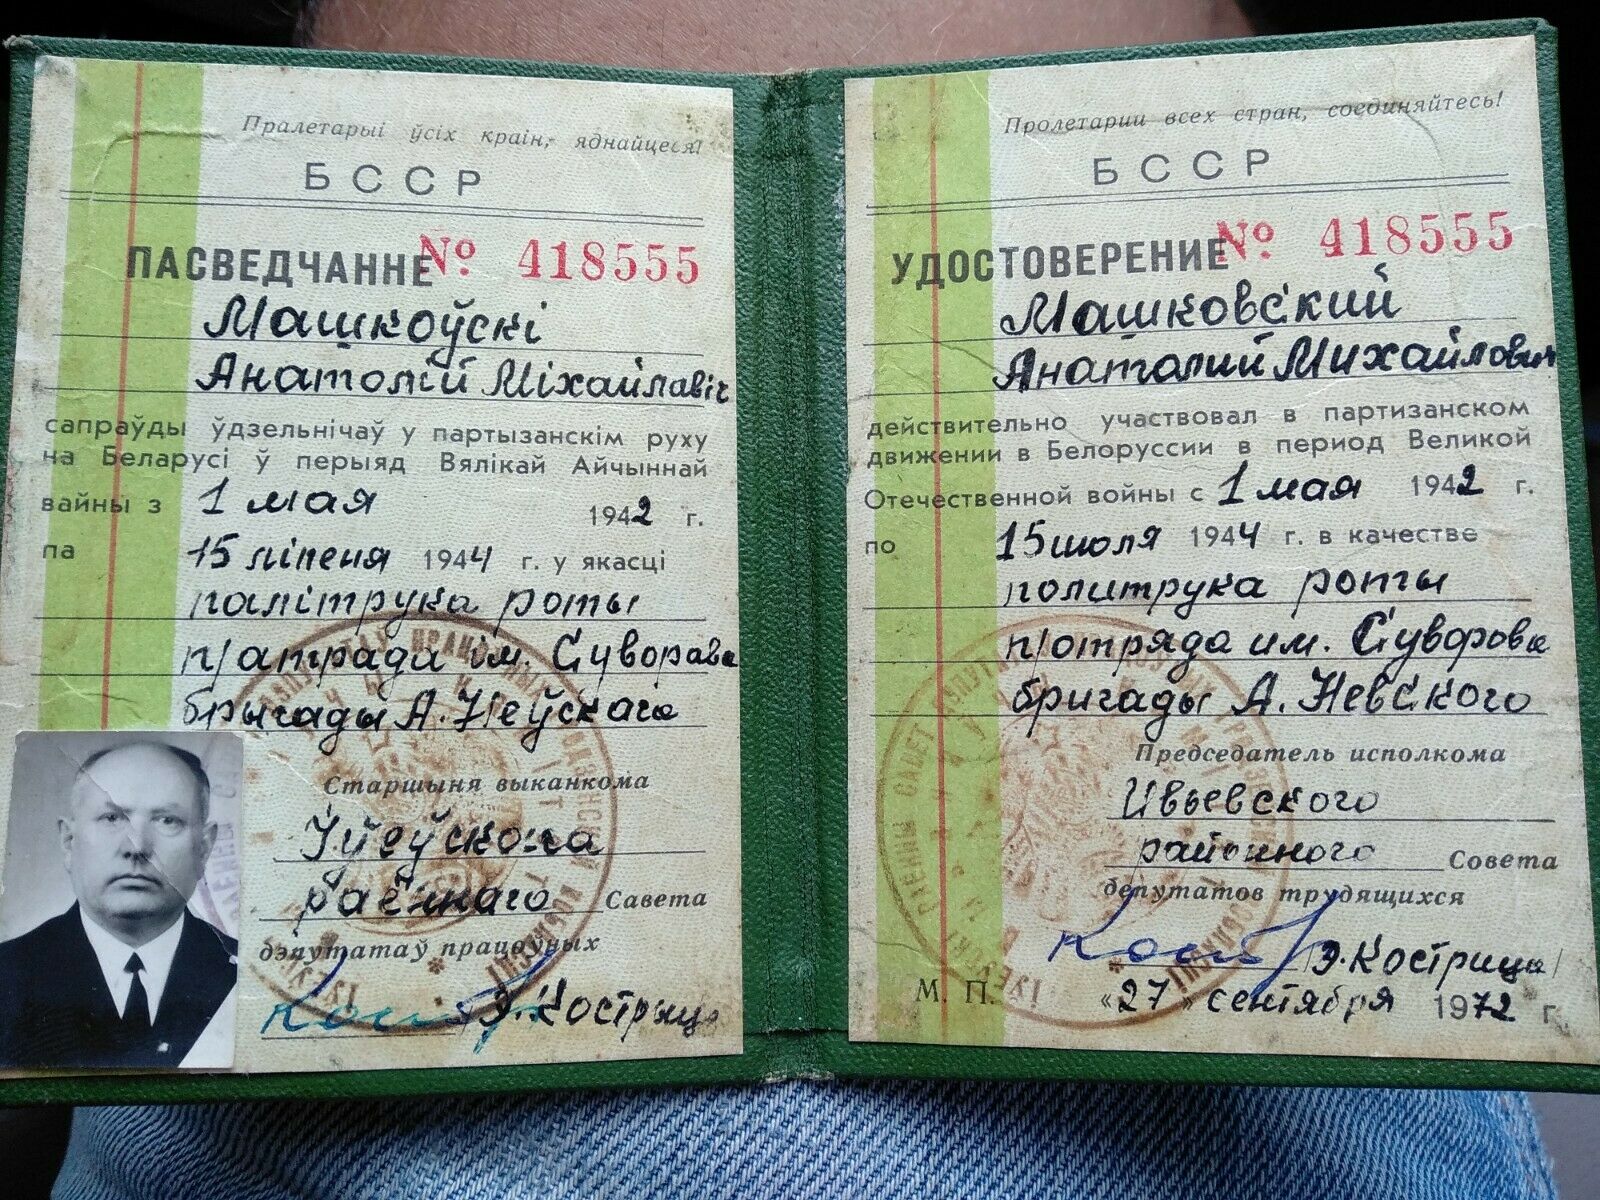 Пралетарыі ўсіх краін, яднайцеся!
БССР
ПАСВЕДЧАННЕ № 418555
Машкоўскі
Анатолій Міхайлавіч
сапраўды ўдзельнічаў у партызанскім руху
на Беларусі ў перыяд Вялікай Айчыннай
вайны з 1 мая 1942 г.
па 15 ліпеня 1944 г. у якасці
палітрука роты
п/атрада ім. Суворава
брыгады А. Неўскага
Старшыня выканкома
Іўеўскага
раённага Савета
дэпутатаў працоўных
Э. Кострица
Пролетарии всех стран, соединяйтесь!
БССР
УДОСТОВЕРЕНИЕ № 418555
Машковский
Анатолий Михайлович
действительно участвовал в партизанском
движении в Белоруссии в период Великой
Отечественной войны с 1 мая 1942 г.
по 15 июля 1944 г. в качестве
политрука роты
п/отряда им. Суворова
бригады А. Невского
Председатель исполкома
Ивьевского
районного Совета
депутатов трудящихся
/Э. Кострица/
М. П. «27» сентября 1972 г.